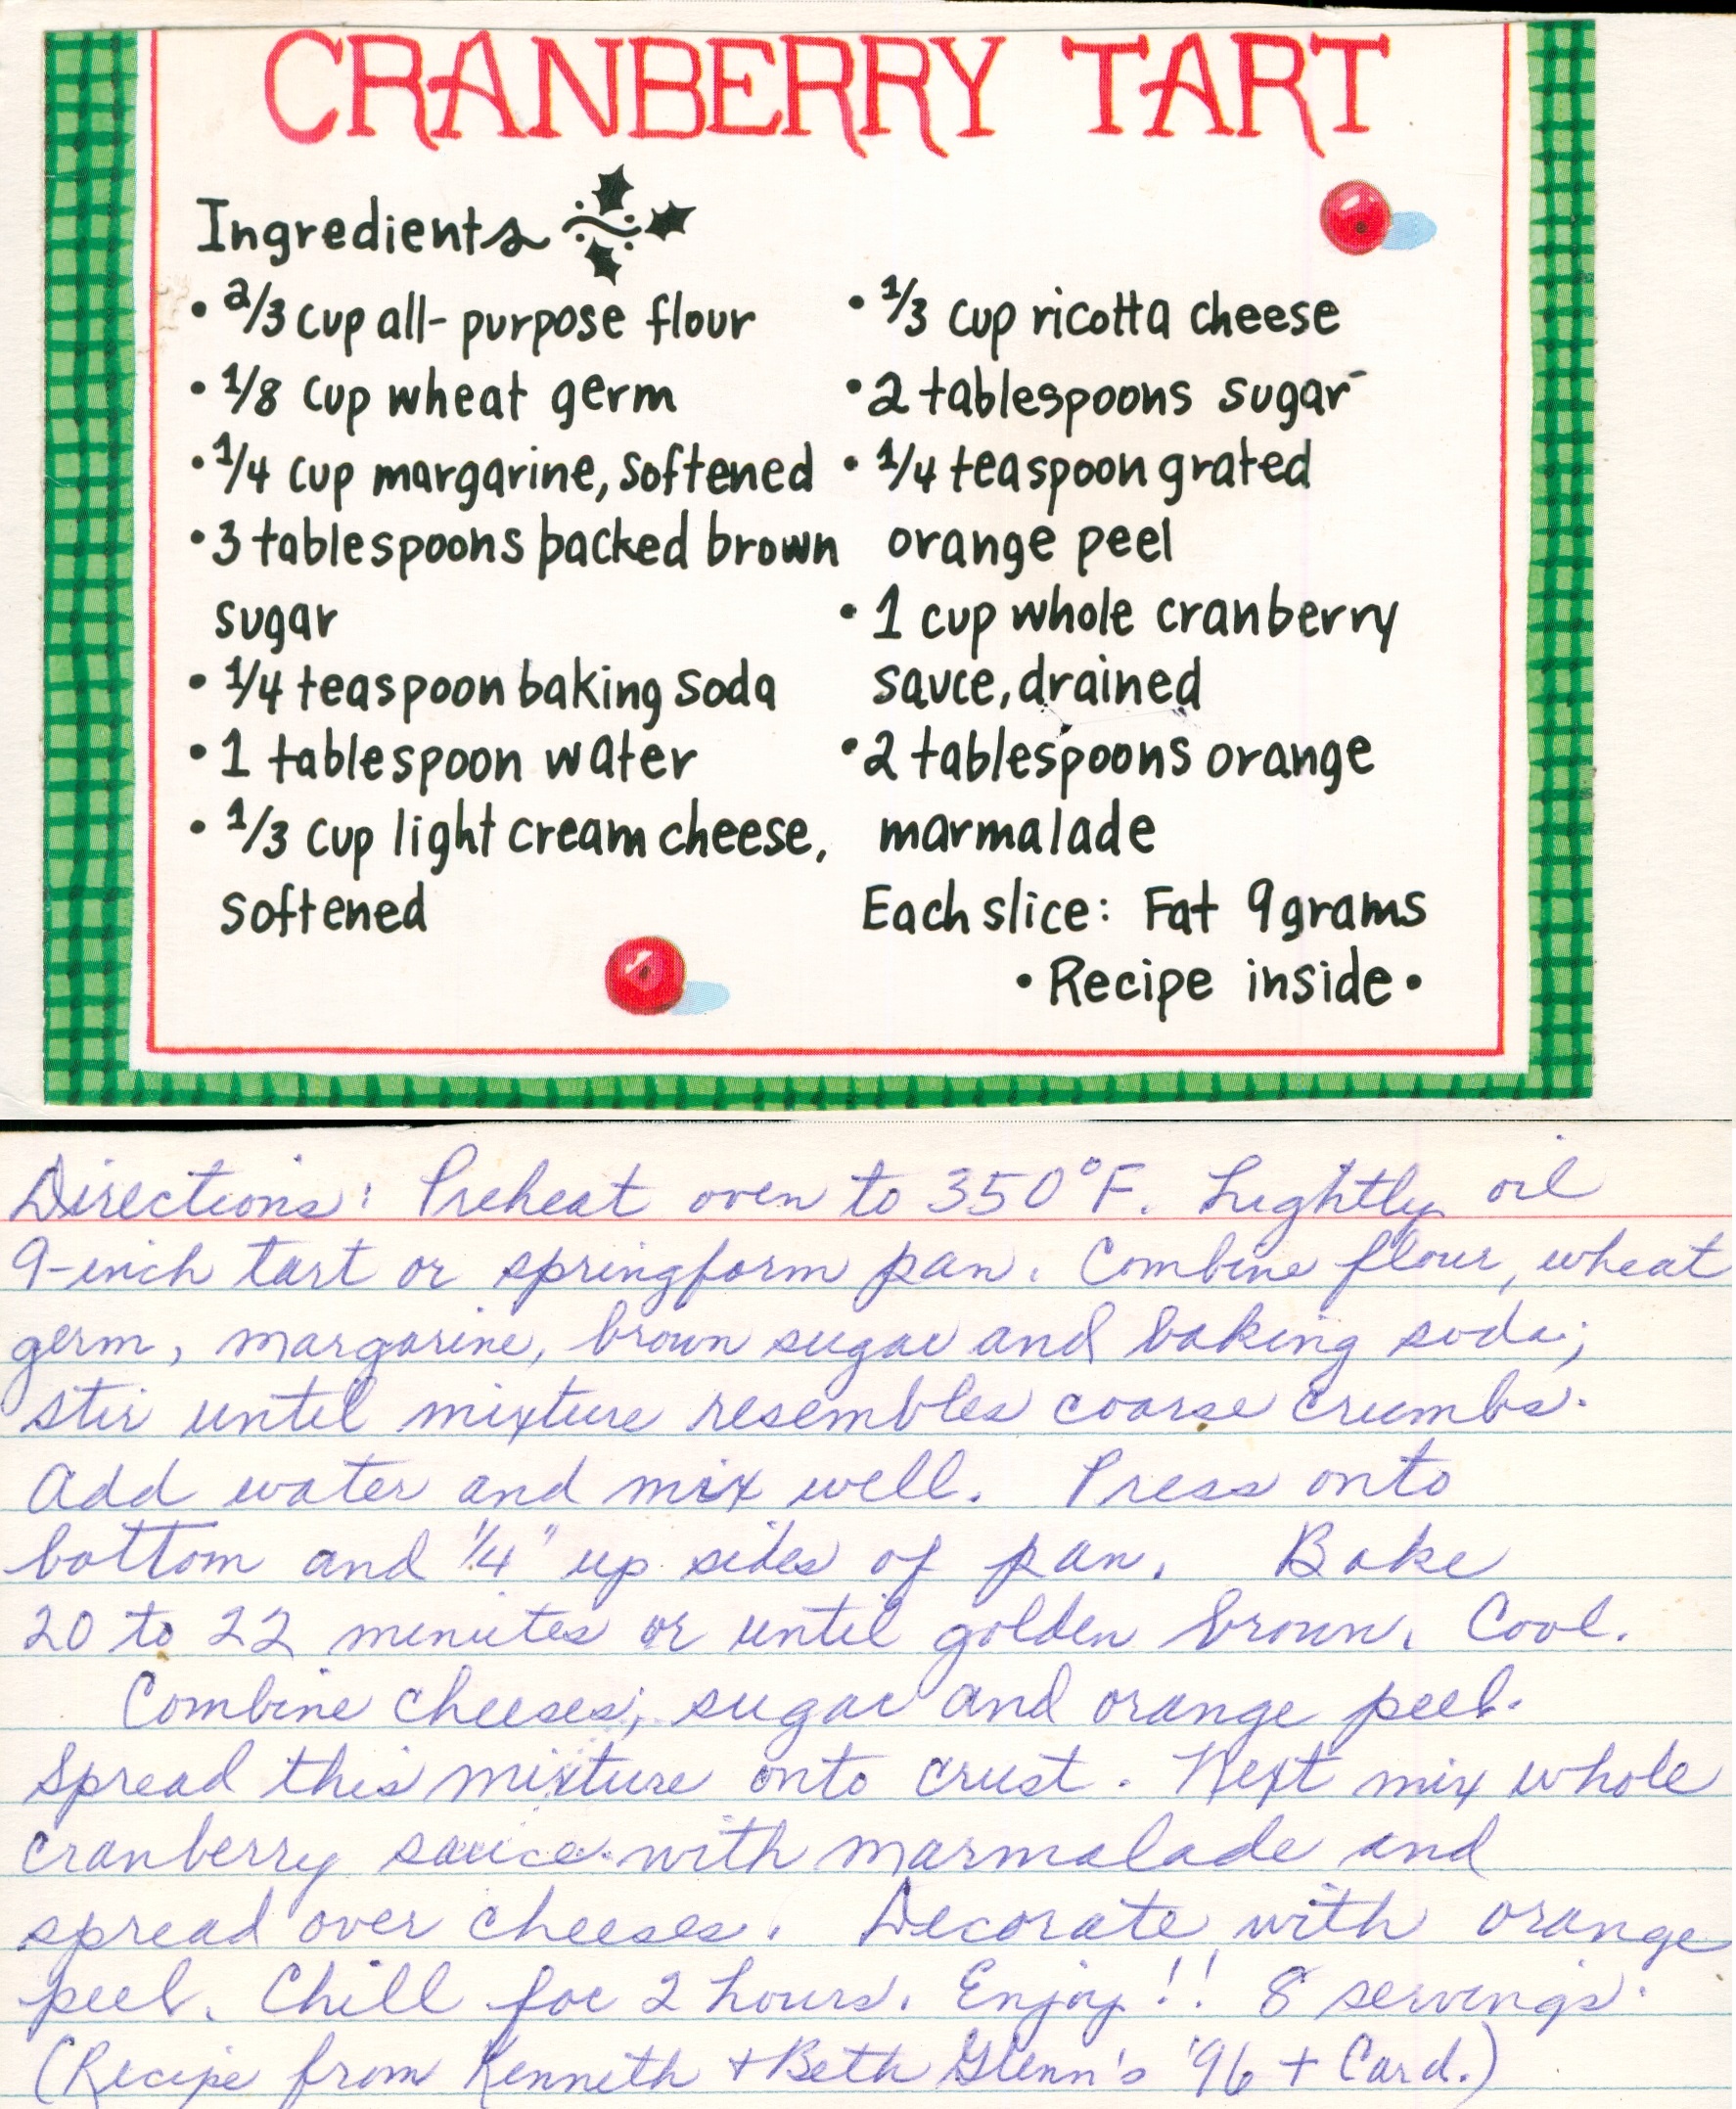 CRANBERRY TART
Ingredients
• 2/3 cup all-purpose flour
• 1/8 cup wheat germ
• 1/4 cup margarine, softened
• 3 tablespoons packed brown
sugar
• 1/4 teaspoon baking soda
• 1 tablespoon water
• 1/3 cup light cream cheese,
softened
• 1/3 cup ricotta cheese
• 2 tablespoons sugar
• 1/4 teaspoon grated
orange peel
• 1 cup whole cranberry
sauce, drained
• 2 tablespoons orange
marmalade
Each slice: Fat 9 grams
• Recipe inside •
Directions: Preheat oven to 350°F. Lightly oil
9-inch tart or springform pan. Combine flour, wheat
germ, margarine, brown sugar and baking soda;
stir until mixture resembles coarse crumbs.
Add water and mix well. Press onto
bottom and 1/4" up sides of pan. Bake
20 to 22 minutes or until golden brown. Cool.
Combine cheeses, sugar and orange peel.
Spread this mixture onto crust. Next mix whole
cranberry sauce with marmalade and
spread over cheeses. Decorate with orange
peel. Chill for 2 hours. Enjoy!! 8 servings.
(Recipe from Kenneth + Beth Glenn's '96 + Card.)